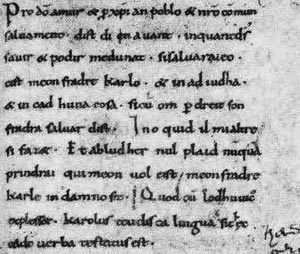 Pro dõ amur & ꝓ xpĩan poblo & nrõ cõmun
saluament · dist di ẽn auant · inquantdš
sauir & podir medunat · sisaluaraieo ·
cist meon fradre karlo · & in adiudha ·
& in cad huna cosa · sicũ om ꝑ dreit son
fradra saluar dist · Ino quid il mialtre
si faz& · Et abludher nul plaid nũquã
prindrai qui meon uol cist meon fradre
karle in damno sit · Quod cũ lodhuuic
explesset · karolus teudisca lingua
eade uerba testatus est ·